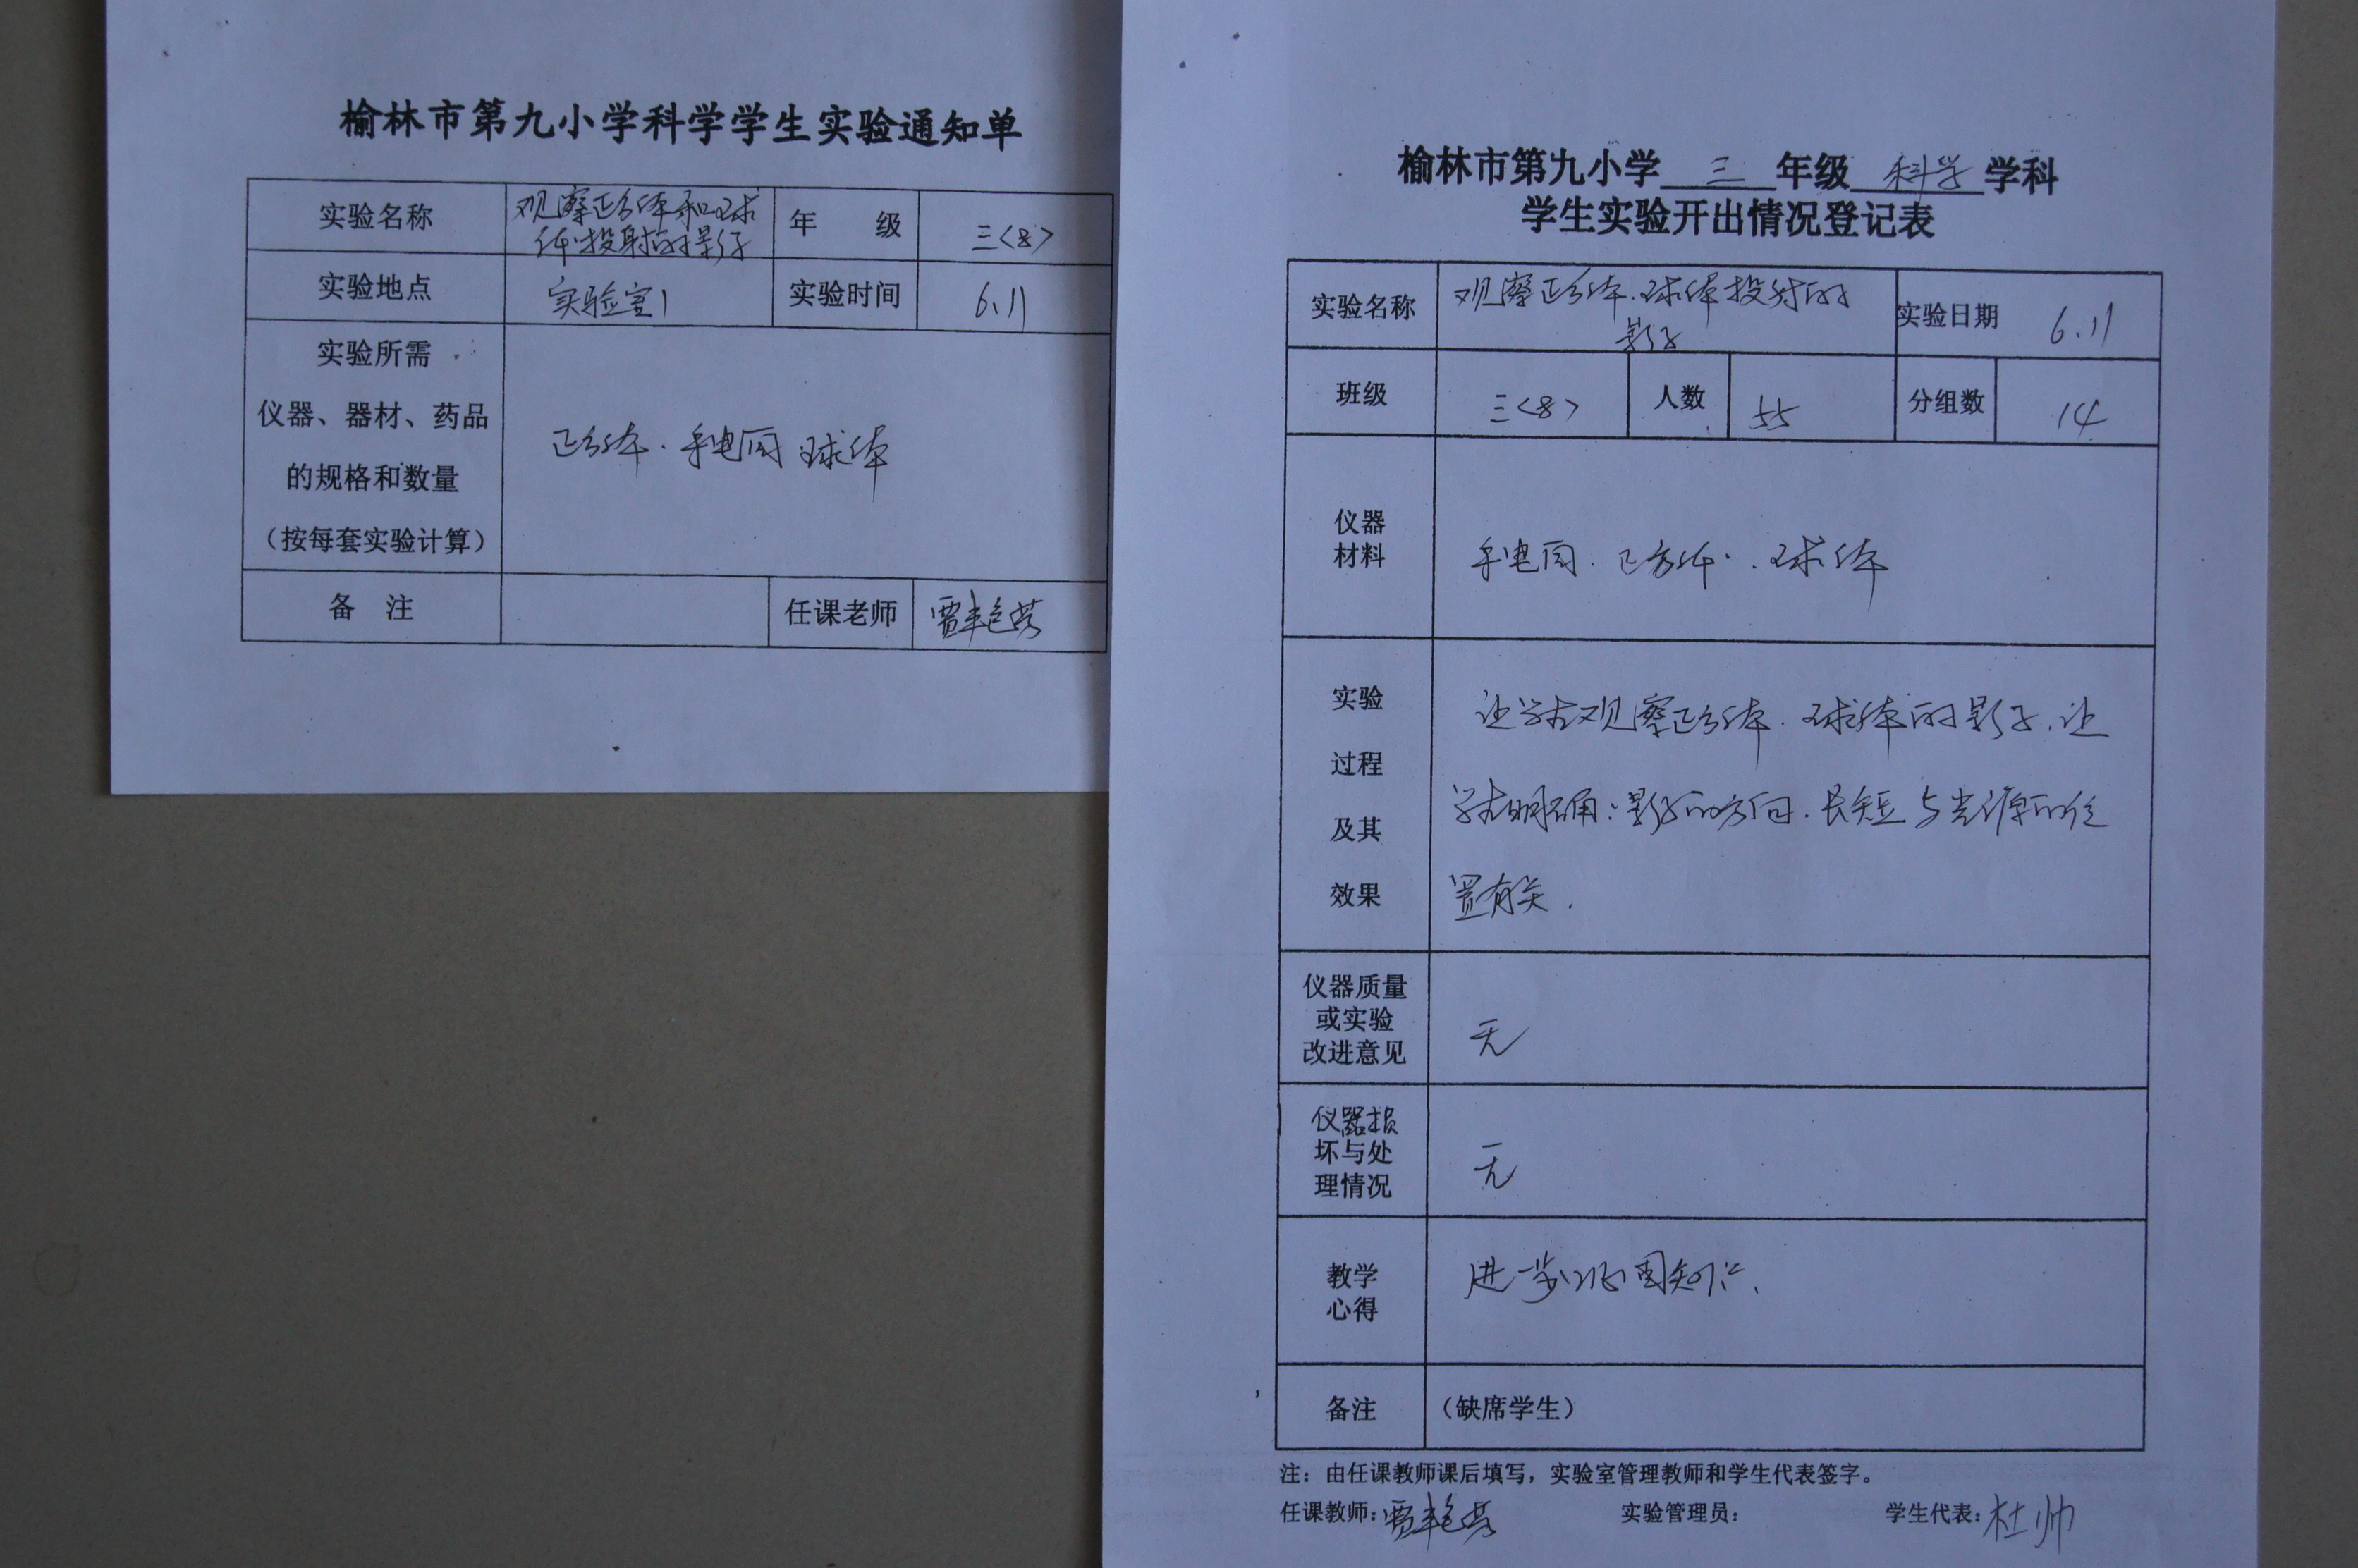 榆林市第九小学科学学生实验通知单
实验名称 观察正方体和球体投射的影子 年 级 三<8>
实验地点 实验室1 实验时间 6.11
实验所需
仪器、器材、药品
的规格和数量
（按每套实验计算）
正方体．手电同 球体
备 注 任课老师 贾艳芳
榆林市第九小学 三 年级 科学 学科
学生实验开出情况登记表
实验名称 观察正方体．球体投射的影子 实验日期 6.11
班级 三<8> 人数 55 分组数 14
仪器
材料
手电同．正方体．球体
实验
过程
及其
效果
让学生观察正方体．球体的影子．让
学生明确：影子的方向．长短与光源的位
置有关．
仪器质量
或实验
改进意见
无
仪器损
坏与处
理情况
无
教学
心得
进一步巩固知识、
备注 （缺席学生）
注：由任课教师课后填写，实验室管理教师和学生代表签字。
任课教师：贾艳芳 实验管理员： 学生代表：杜帅